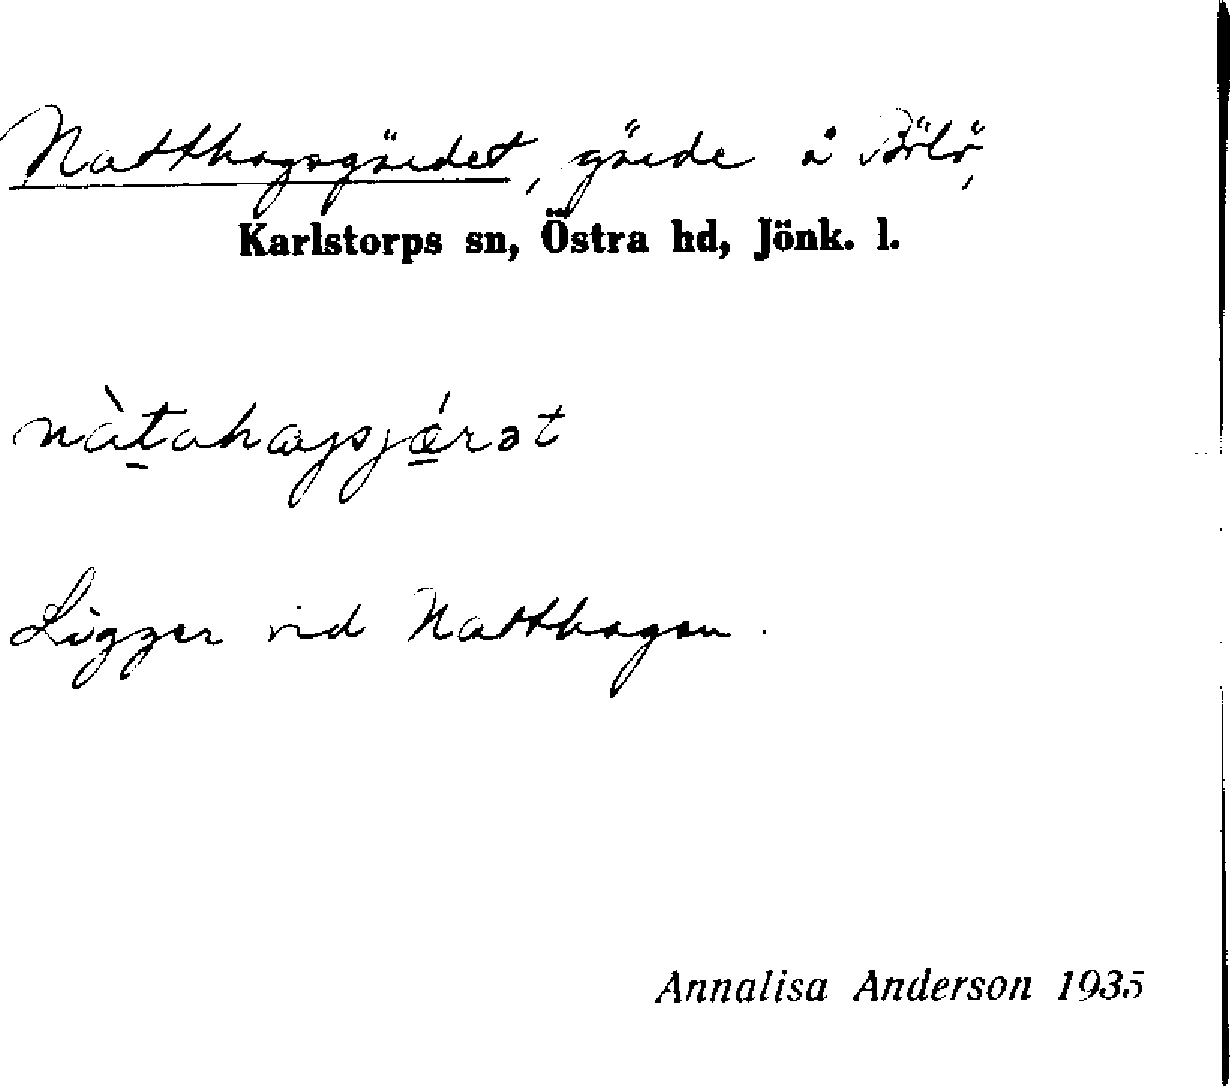 Natthagsgärdet, gärde å Bölö,
Karlstorps sn, Östra hd, Jönk. l.
Ligger vid Natthagen.
Annalisa Anderson 1935